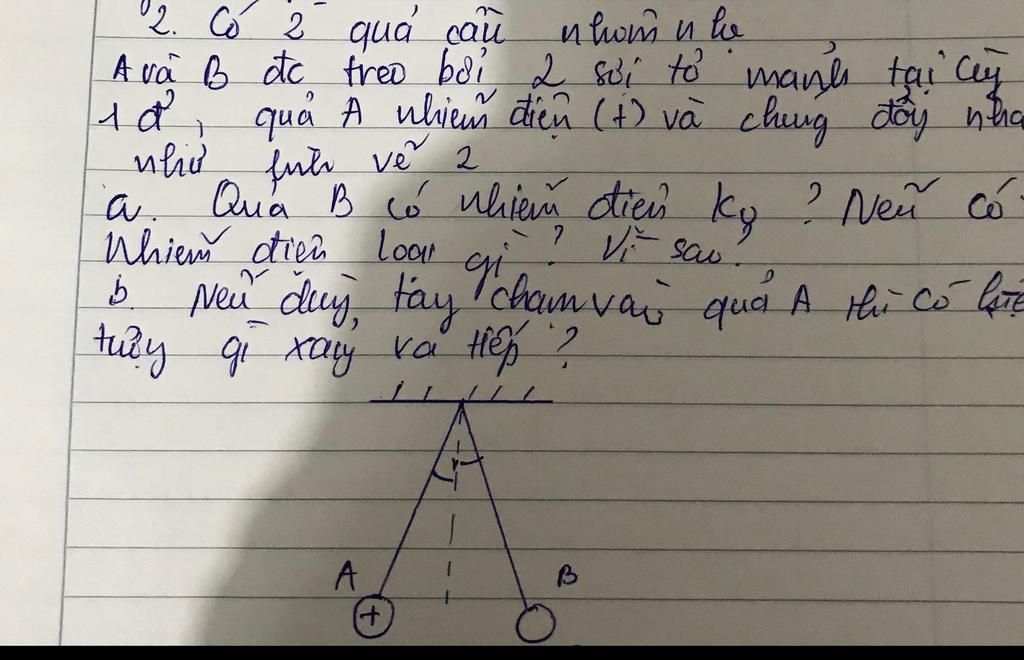 2. Có 2 quả cầu nhôm nhẹ
A và B đc treo bởi 2 sợi tơ mảnh tại cùg
1 đ', quả A nhiễm điện (+) và chúng đẩy nha
như hình vẽ 2
a. Quả B có nhiễm điện kg ? Nếu có
Nhiễm điện loại gì ? Vì sao?
b. Nếu dùg tay chạm vào quả A thì có hiện
tượg gì xảy ra tiếp ?
A B
+